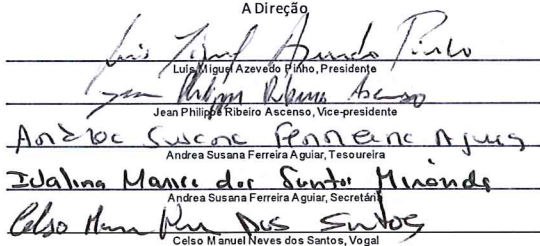 A Direção
Luis Miguel Azevedo Pinho
Luis Miguel Azevedo Pinho, Presidente
Jean Philippe Ribeiro Ascenso
Jean Philippe Ribeiro Ascenso, Vice-presidente
Andrea Susana Ferreira Aguiar
Andrea Susana Ferreira Aguiar, Tesoureira
Idalina Maria dos Santos Miranda
Andrea Susana Ferreira Aguiar, Secretária
Celso Manuel Dos Santos
Celso Manuel Neves dos Santos, Vogal